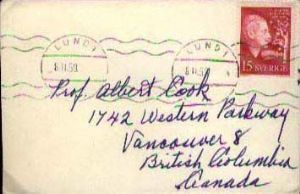 LUND 1
8.11.59.
LUND 1
8.11.59.
15 SVERIGE
Prof Albert Cook
1742 Western Parkway
Vancouver 8
British Columbia
Canada